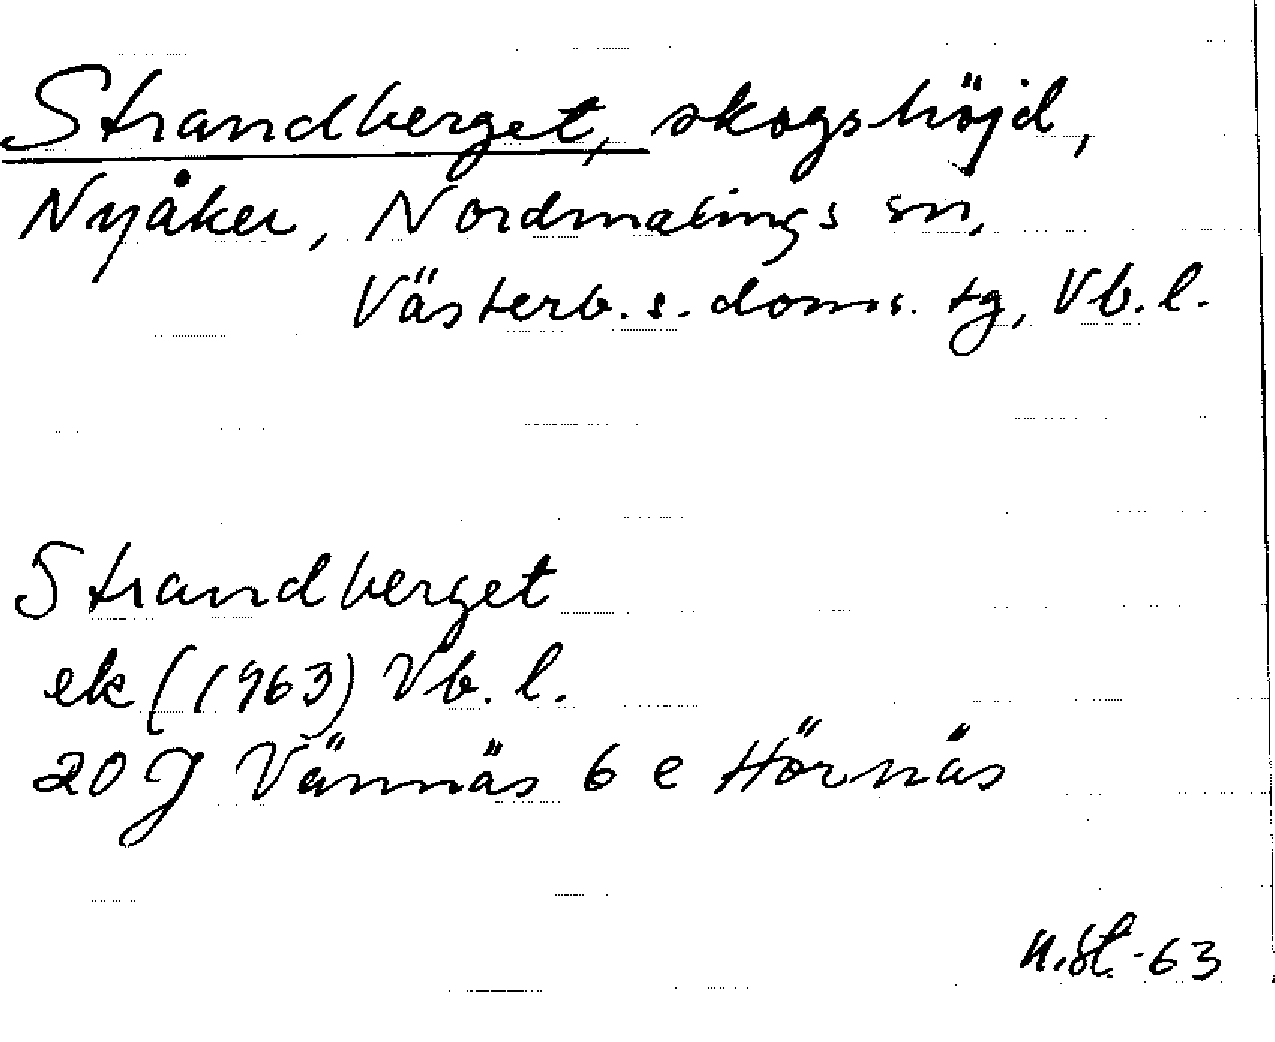 Strandberget, skogshöjd,
Nyåker, Nordmalings sn,
Västerb. s. doms. tg, Vb. l.
Strandberget
ek (1963) Vb. l.
20 J Vännäs 6 e Hörnäs
-63